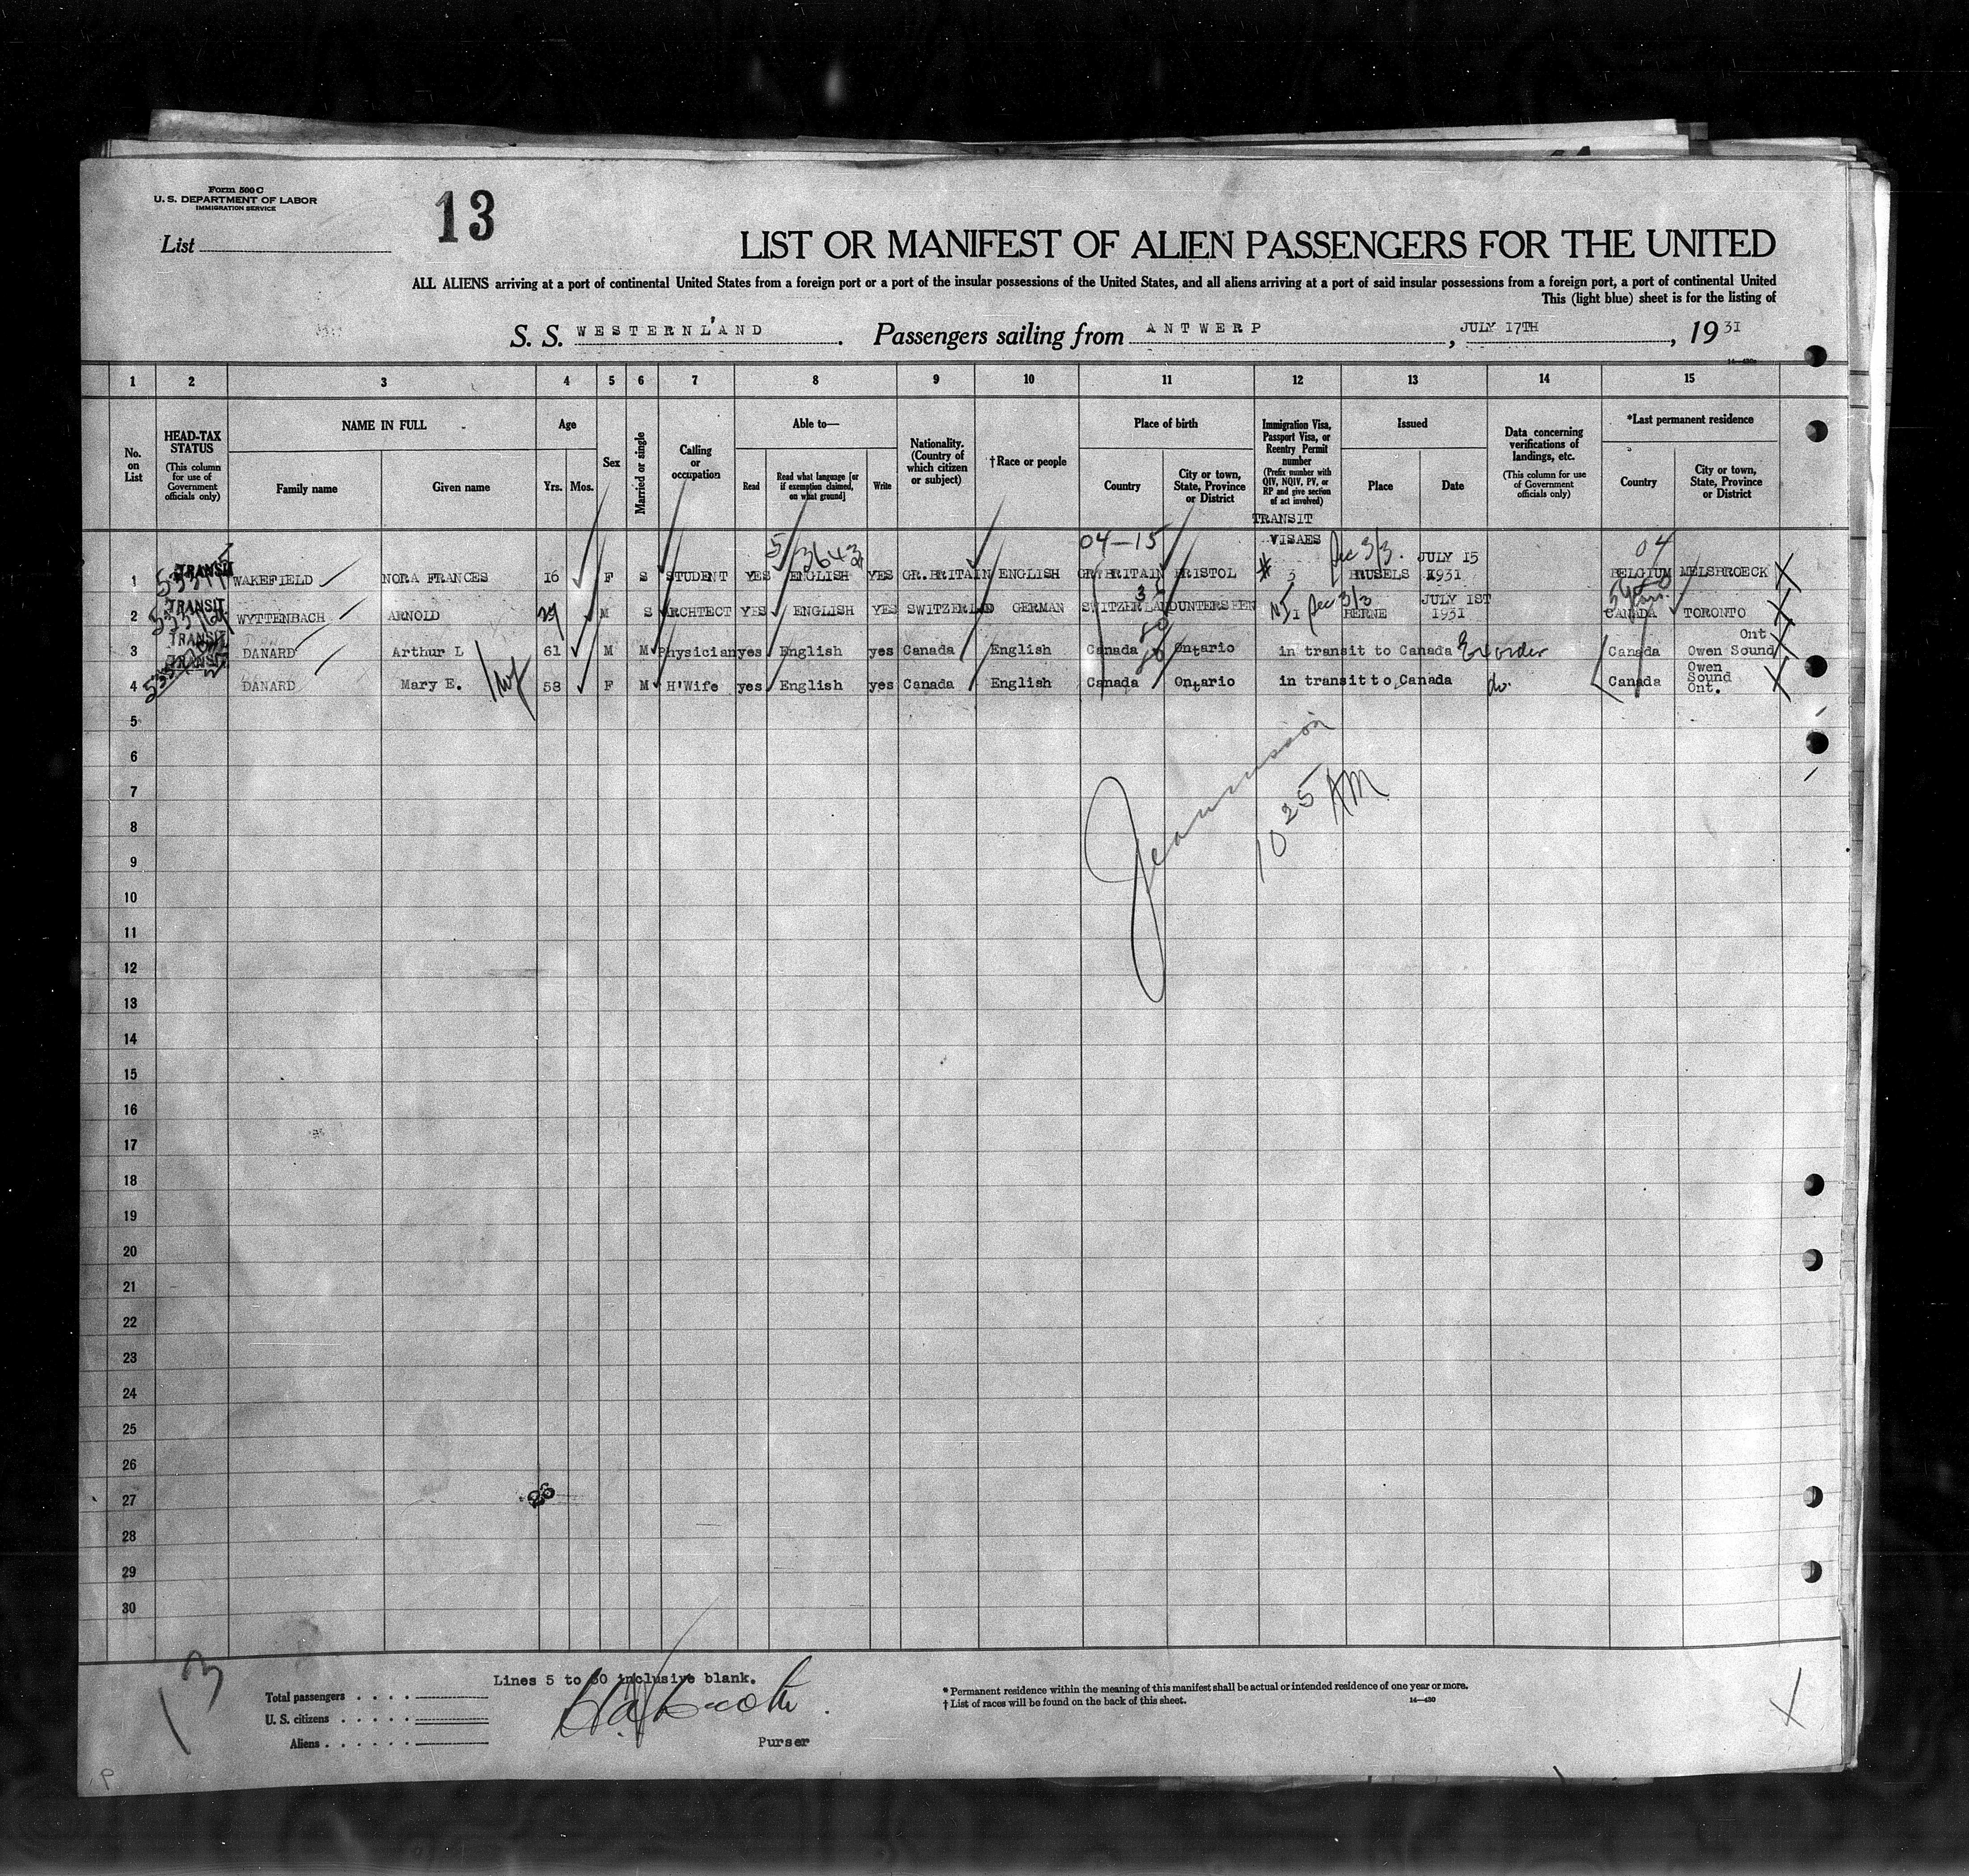 Form 500 C
U. S. DEPARTMENT OF LABOR
IMMIGRATION SERVICE
13
List
LIST OR MANIFEST OF ALIEN PASSENGERS FOR THE UNITED
ALL ALIENS arriving at a port of continental United States from a foreign port or a port of the insular possessions of the United States, and all aliens arriving at a port of said insular possessions from a foreign port, a port of continental United
This (light blue) sheet is for the listing of
S. S. WESTERNLAND. Passengers sailing from ANTWERP, JULY 17TH, 19 31
1 2 3 4 5 6 7 8 9 10 11 12 13 14 15
No. on List
HEAD-TAX STATUS (This column for use of Government officials only)
NAME IN FULL Family name Given name
Age Yrs. Mos.
Sex
Married or single
Calling or occupation
Able to— Read Read what language [or if exemption claimed, on what ground] Write
Nationality. (Country of which citizen or subject)
†Race or people
Place of birth Country City or town, State, Province or District
Immigration Visa, Passport Visa, or Reentry Permit number (Prefix number with QIV, NQIV, PV, or RP and give section of act involved)
Issued Place Date
Data concerning verifications of landings, etc. (This column for use of Government officials only)
*Last permanent residence Country City or town, State, Province or District
TRANSIT VISAES
5/3643 04-15 Sec 3/3. 04
1 TRANSIT WAKEFIELD NORA FRANCES 16 F S STUDENT YES ENGLISH YES GR.BRITAIN ENGLISH GR.BRITAIN BRISTOL # 3 BRUSELS JULY 15 1931 BELGIUM MELSBROECK
2 TRANSIT WYTTENBACH ARNOLD 29 M S ARCHTECT YES ENGLISH YES SWITZERLAND GERMAN SWITZERLAND UNTERSEEN 1 Sec 3/3 BERNE JULY 1ST 1931 CANADA TORONTO
3 TRANSIT DANARD Arthur L 61 M M Physician yes English yes Canada English Canada Ontario in transit to Canada Ex order Canada Owen Sound Ont
4 TRANSIT DANARD Mary E. wf 58 F M H'Wife yes English yes Canada English Canada Ontario in transit to Canada do. Canada Owen Sound Ont.
5
6
7
10 25 AM
8
9
10
11
12
13
14
15
16
17
18
19
20
21
22
23
24
25
26
27
28
29
30
13
Lines 5 to 30 inclusive blank.
Total passengers
U. S. citizens
Aliens
Purser
* Permanent residence within the meaning of this manifest shall be actual or intended residence of one year or more.
† List of races will be found on the back of this sheet. 14—430